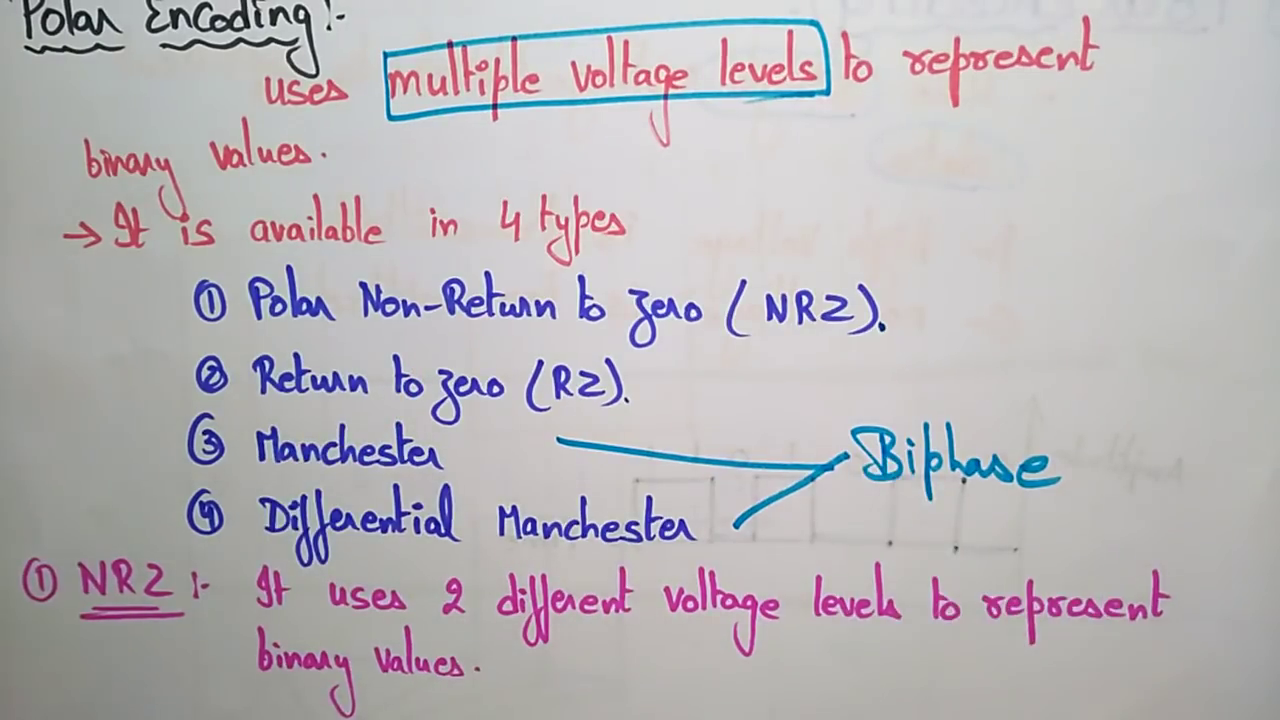 Polar Encoding:-
uses multiple voltage levels to represent
binary values.
→ It is available in 4 types
① Polar Non-Return to zero (NRZ).
② Return to zero (RZ).
③ Manchester
Biphase
④ Differential Manchester
① NRZ :- It uses 2 different voltage levels to represent
binary values.